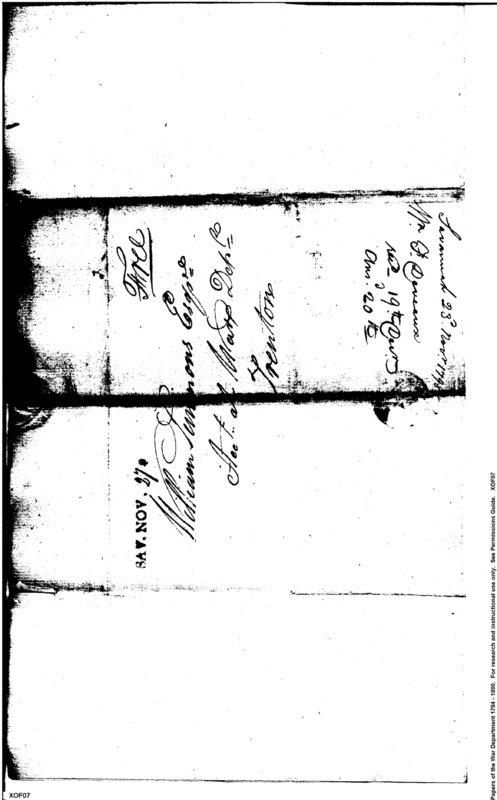 Free
SAV. NOV. 27
William Simmons Esqr.
Acct. at War Dept.
Trenton
Savannah 23d Novr 179
Mr
recd 19th
Ans. 20th
XOF07
Papers of the War Department 1784 - 1800. For research and instructional use only. See Permissions Guide. XOF07